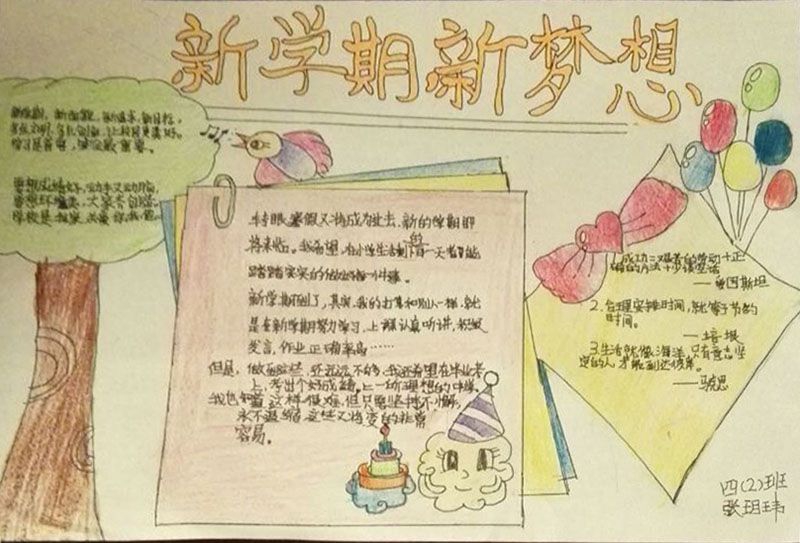 新学期新梦想
新学期，新面貌，新追求，新目标，
学习是首要，健康最重要。
转眼寒假又将成为过去，新的学期即
将来临。我希望，在小学生活剩下的每一天都能
踏踏实实的做好每一件事。
新学期到了，其实，我的打算和别人一样，就
是在新学期努力学习，上课认真听讲，积极
发言，作业正确率高……
但是，做到这些，还远远不够，我还希望在毕业考
上，考出个好成绩。上一所理想的中学。
我也知道这样很难，但只要坚持不懈，
永不退缩，这些又将变的非常
容易。
1.成功=艰苦的劳动+正
确的方法+少谈空话
——爱因斯坦
2.合理安排时间，就等于节约
时间。
——培根
3.生活就像海洋，只有意志坚
定的人，才能到达彼岸。
——马克思
四(2)班
张玥玮